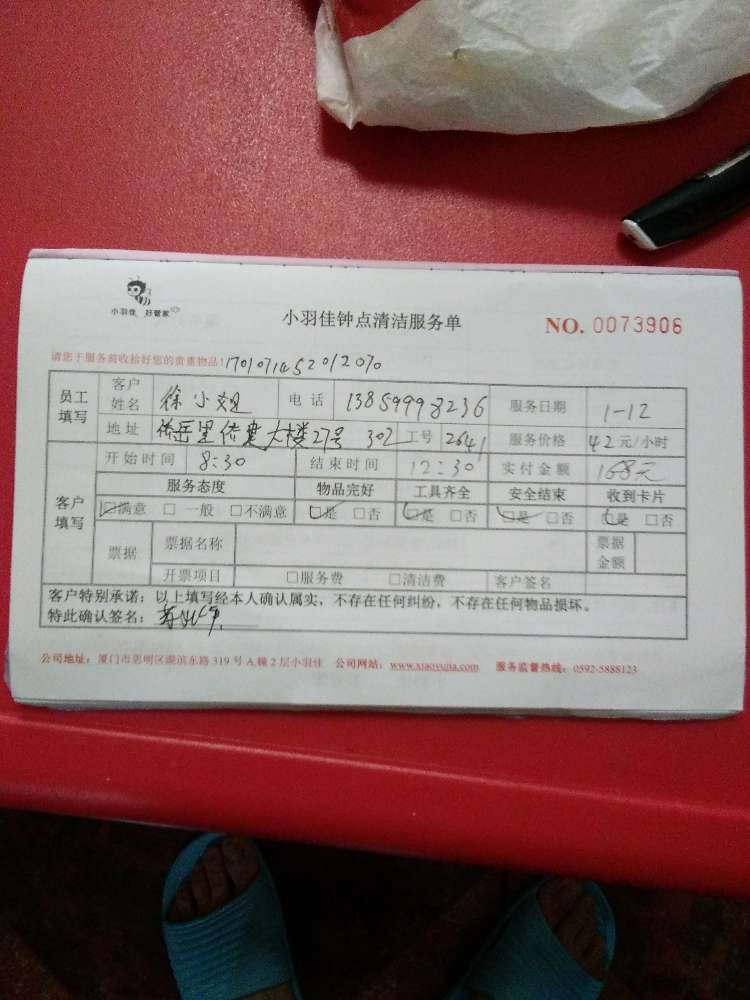 小羽佳 好管家
小羽佳钟点清洁服务单
NO. 0073906
请您于服务前收拾好您的贵重物品! 1701071452012070
员工填写 客户姓名 徐小姐 电话 13859998236 服务日期 1-12
地址 大楼27号 302 工号 2641 服务价格 42元/小时
客户填写 开始时间 8:30 结束时间 12:30 实付金额 168元
服务态度 物品完好 工具齐全 安全结束 收到卡片
☑满意 □一般 □不满意 ☑是 □否 ☑是 □否 ☑是 □否 ☑是 □否
票据 票据名称 票据金额
开票项目 □服务费 □清洁费 客户签名
客户特别承诺：以上填写经本人确认属实，不存在任何纠纷，不存在任何物品损坏。
特此确认签名：
公司地址：厦门市思明区湖滨东路319号A幢2层小羽佳 公司网站：www.xiaoyujia.com 服务监督热线：0592-5888123